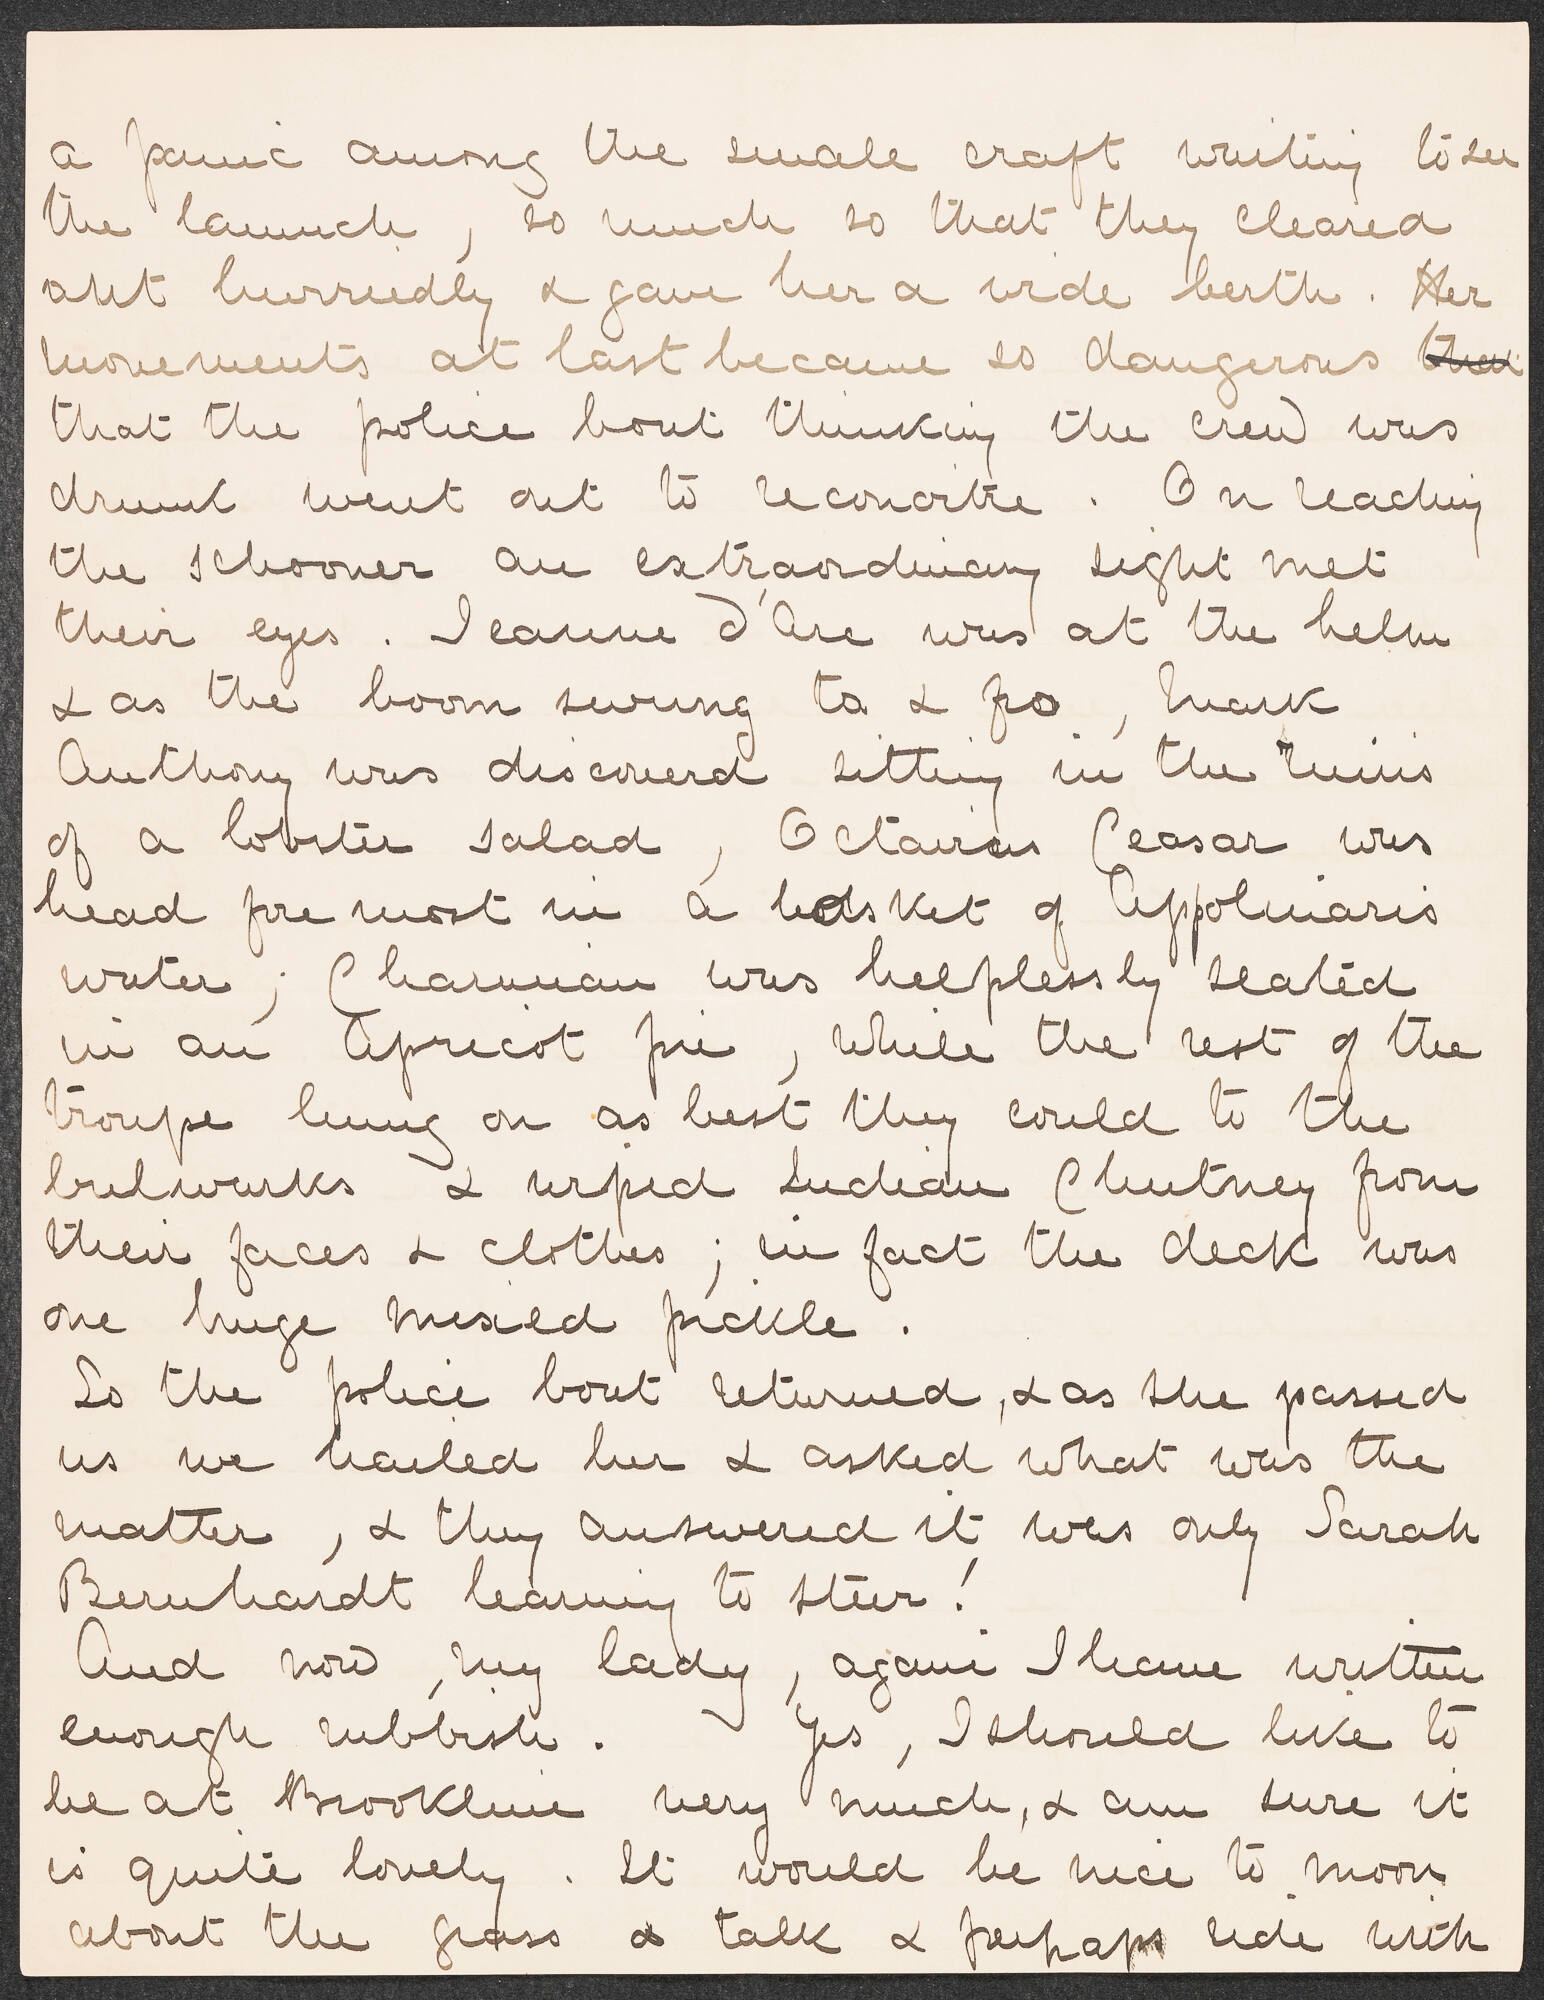 a panic among the small craft waiting to see
the launch, so much so that they cleared
out hurriedly & gave her a wide berth. Her
movements at last became so dangerous then
that the police boat thinking the crew was
drunk went out to reconoitre. On reaching
the schooner an extraordinary sight met
their eyes. Jeanne d'Arc was at the helm
& as the boom swung to & fro, Mark
Anthony was discoverd sitting in the ruins
of a lobster salad, Octavius Ceasar was
head foremost in a basket of Appolinaris
water; Charmian was helplessly seated
in an Apricot pie, while the rest of the
troupe hung on as best they could to the
bulwarks & wiped Indian Chutney from
their faces & clothes; in fact the deck was
one huge mixed pickle.
So the police boat returned, & as she passed
us we hailed her & asked what was the
matter, & they answered it was only Sarah
Bernhardt learning to steer!
And now, my lady, again I have written
enough rubbish. Yes, I should like to
be at Brookline very much, & am sure it
is quite lovely. It would be nice to moon
about the grass & talk & perhaps ride with